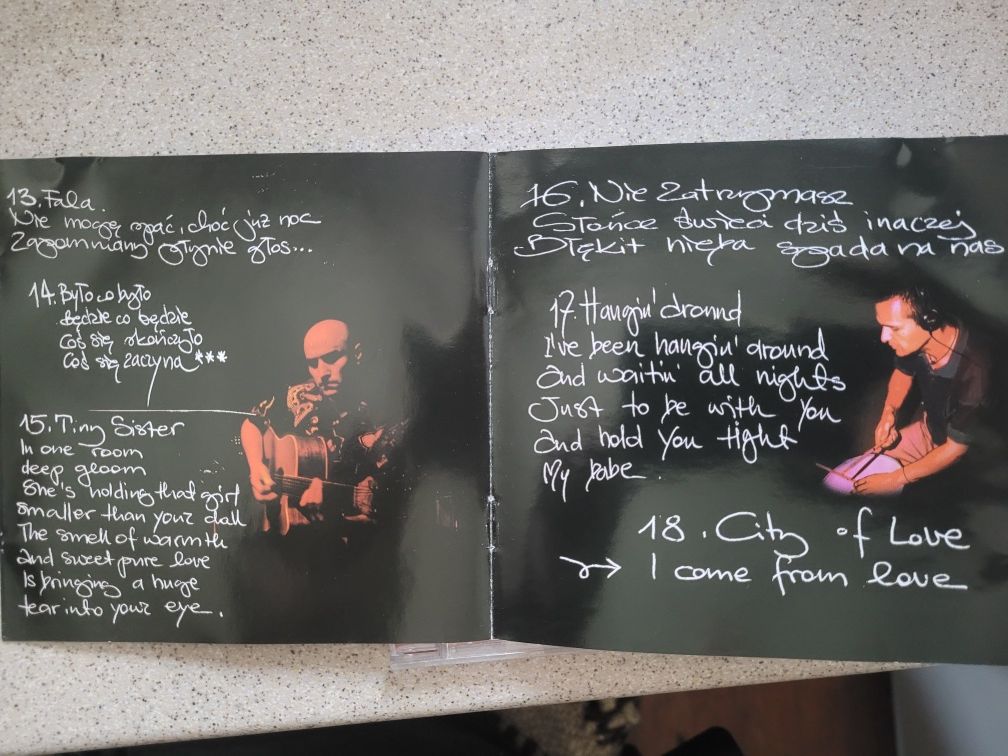 13. Fala.
Nie mogę spać, choć już noc
Zapomniany płynie głos...
14. Było co było
będzie co będzie
coś się skończyło
coś się zaczyna ***
15. Tiny Sister
In one room
deep gloom
She's holding that girl
smaller than your doll
The smell of warmth
and sweet pure love
Is bringing a huge
tear into your eye.
16. Nie Zatrzymasz
Słońce świeci dziś inaczej
Błękit nieba spada na nas
17. Hangin' around
I've been hangin' around
and waitin' all nights
Just to be with you
and hold you tight
My babe.
18. City of Love
→ I come from love